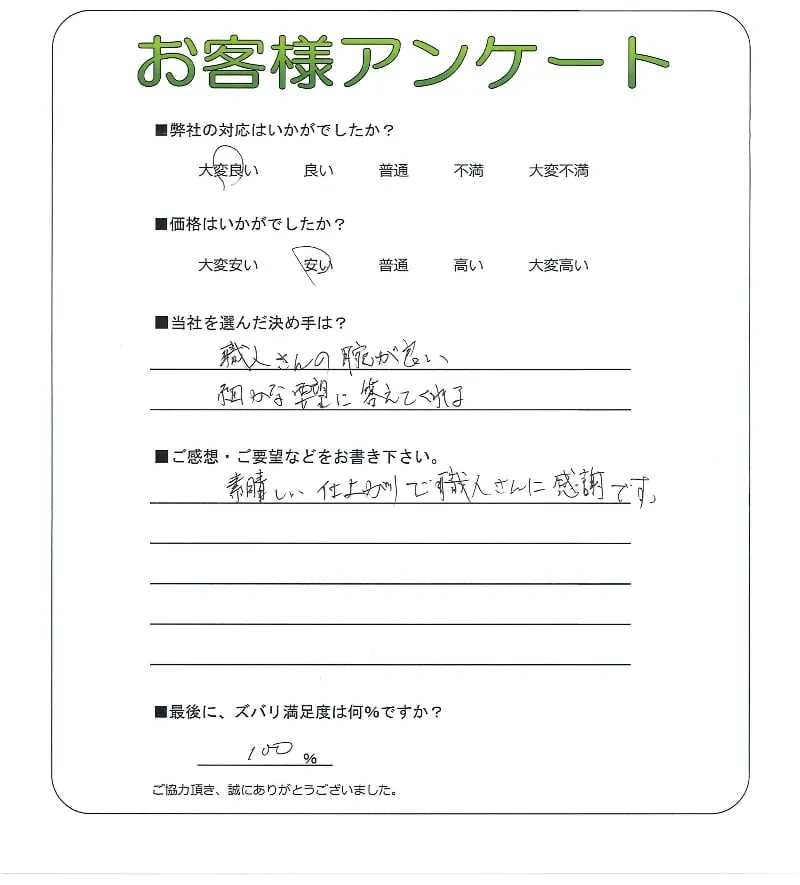 お客様アンケート
■弊社の対応はいかがでしたか？
大変良い 良い 普通 不満 大変不満
■価格はいかがでしたか？
大変安い 安い 普通 高い 大変高い
■当社を選んだ決め手は？
職人さんの腕が良い
細かな要望に答えてくれる
■ご感想・ご要望などをお書き下さい。
素晴しい仕上がりで職人さんに感謝です。
■最後に、ズバリ満足度は何％ですか？
100 %
ご協力頂き、誠にありがとうございました。